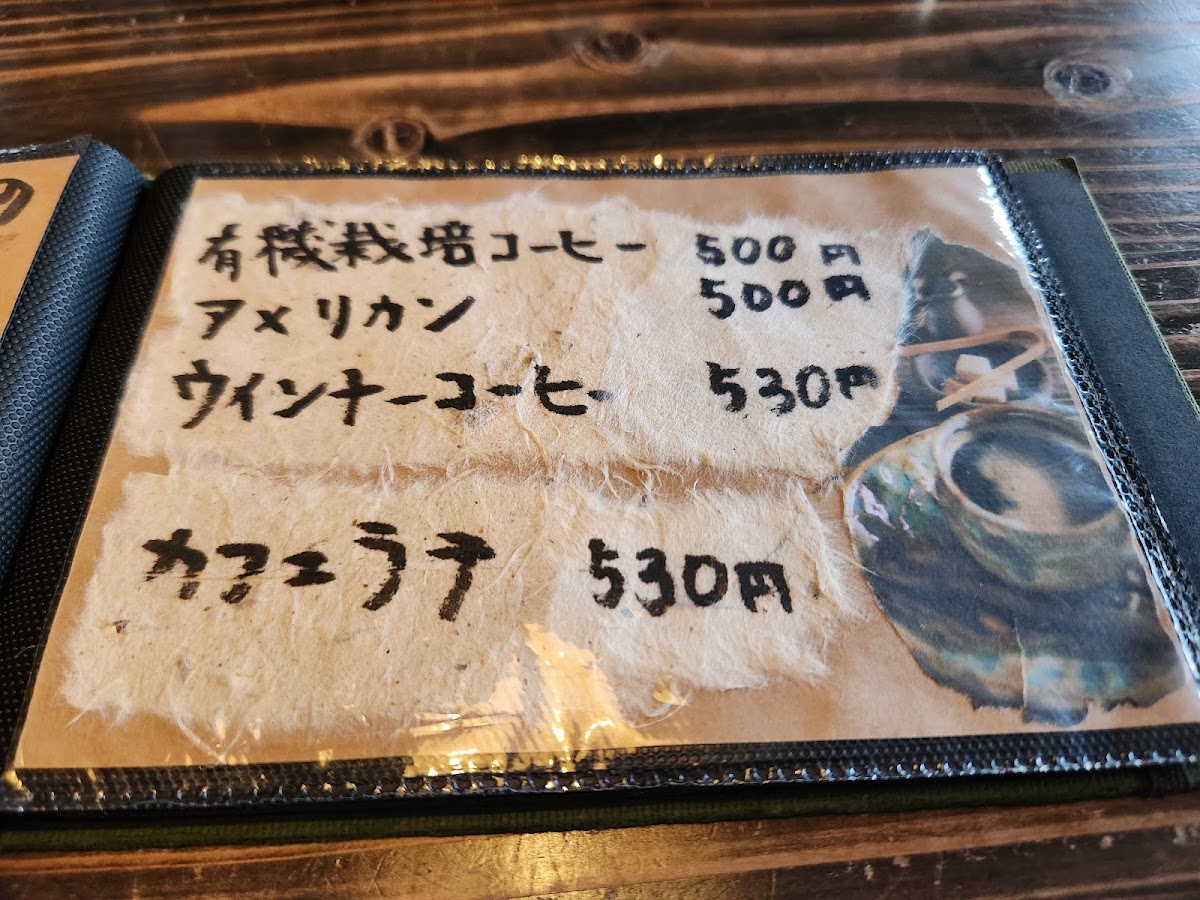 有機栽培コーヒー 500円
アメリカン 500円
ウインナーコーヒー 530円
カフェラテ 530円
の